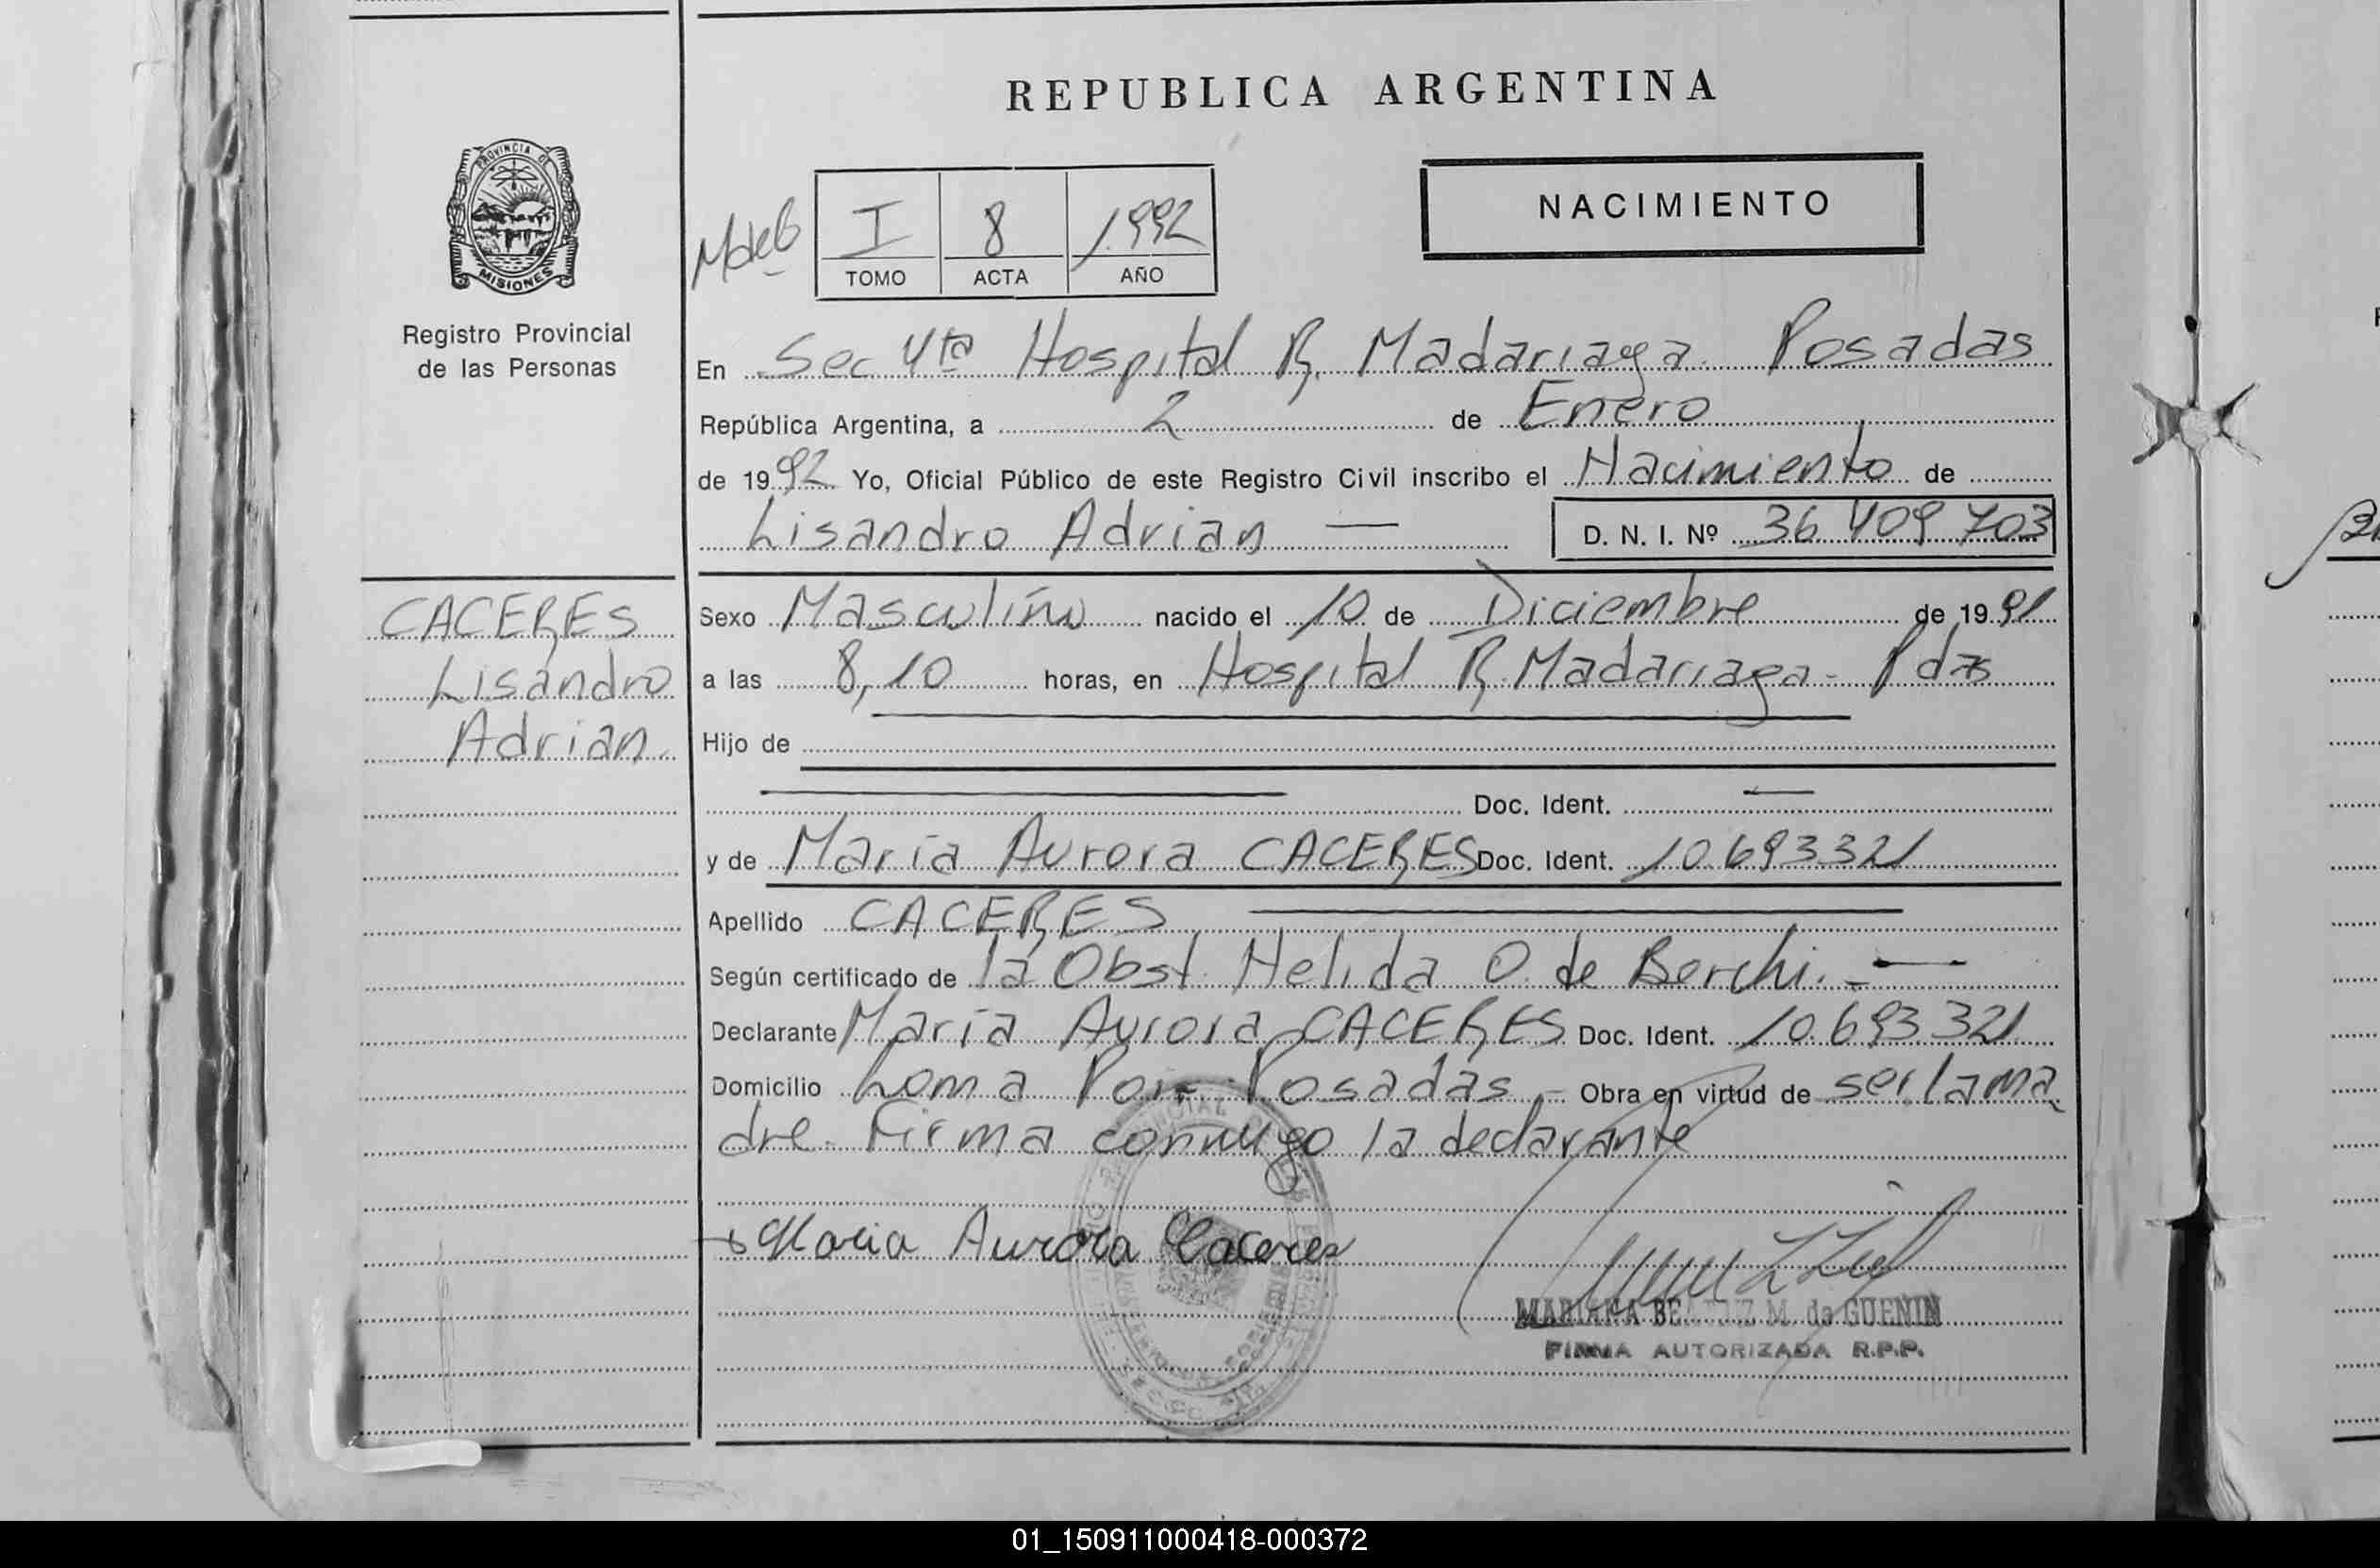 REPUBLICA ARGENTINA
PROVINCIA DE
MISIONES
Registro Provincial
de las Personas
NACIMIENTO
I 8 1992
TOMO ACTA AÑO
En Sec 4ta Hospital R. Madariaga Posadas
República Argentina, a 2 de Enero
de 1992 Yo, Oficial Público de este Registro Civil inscribo el Nacimiento de
Lisandro Adrian — D. N. I. Nº 36 409 703
CACERES
Lisandro
Adrian.
Sexo Masculino nacido el 10 de Diciembre de 1991
a las 8,10 horas, en Hospital R. Madariaga - Pdas
Hijo de
Doc. Ident. —
y de Maria Aurora CACERES Doc. Ident. 10.693321
Apellido CACERES
Según certificado de la Obst. Nelida O. de Borchi. —
Declarante Maria Aurora CACERES Doc. Ident. 10.693.321
Domicilio Loma Poi - Posadas - Obra en virtud de ser la ma
dre. Firma conmigo la declarante
Maria Aurora Caceres
MARIANA BEATRIZ M. de GUENIN
FIRMA AUTORIZADA R.P.P.
01_150911000418-000372